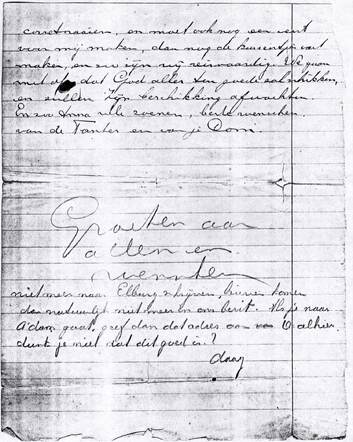 en moet ook nog een vest
voor mij maken, dan nog de kussentjes wat
maken, en we zijn wij reisvaardig. We gaan
met op dat God alles ten goede zal schikken,
en zullen Zijn beschikking afwachten.
En nu Anna vele zoenen, beste wenschen,
van de Tantes en van je Dom.
Groeten aan
allen en
vrienden
niet meer naar Elburg schrijven, brieven komen
dan natuurlijk niet meer in ons bezit. Als je naar
A'dam gaat, geef dan dat adres aan O alhier.
dunk je niet dat dit goed is?
daag